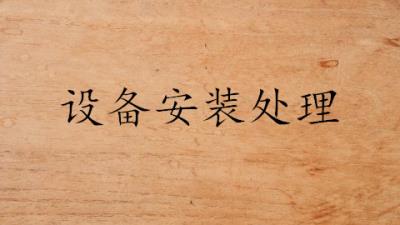 设备安装处理